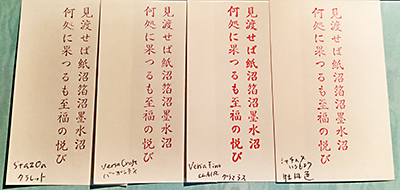 見渡せば紙沼箔沼墨水沼
何処に果つるも至福の悦び
StazOn
クラレット
見渡せば紙沼箔沼墨水沼
何処に果つるも至福の悦び
VersaCraft
バーガンディ
見渡せば紙沼箔沼墨水沼
何処に果つるも至福の悦び
VersaFine
CLAIR グラマラス
見渡せば紙沼箔沼墨水沼
何処に果つるも至福の悦び
シャチハタ
いろもよう